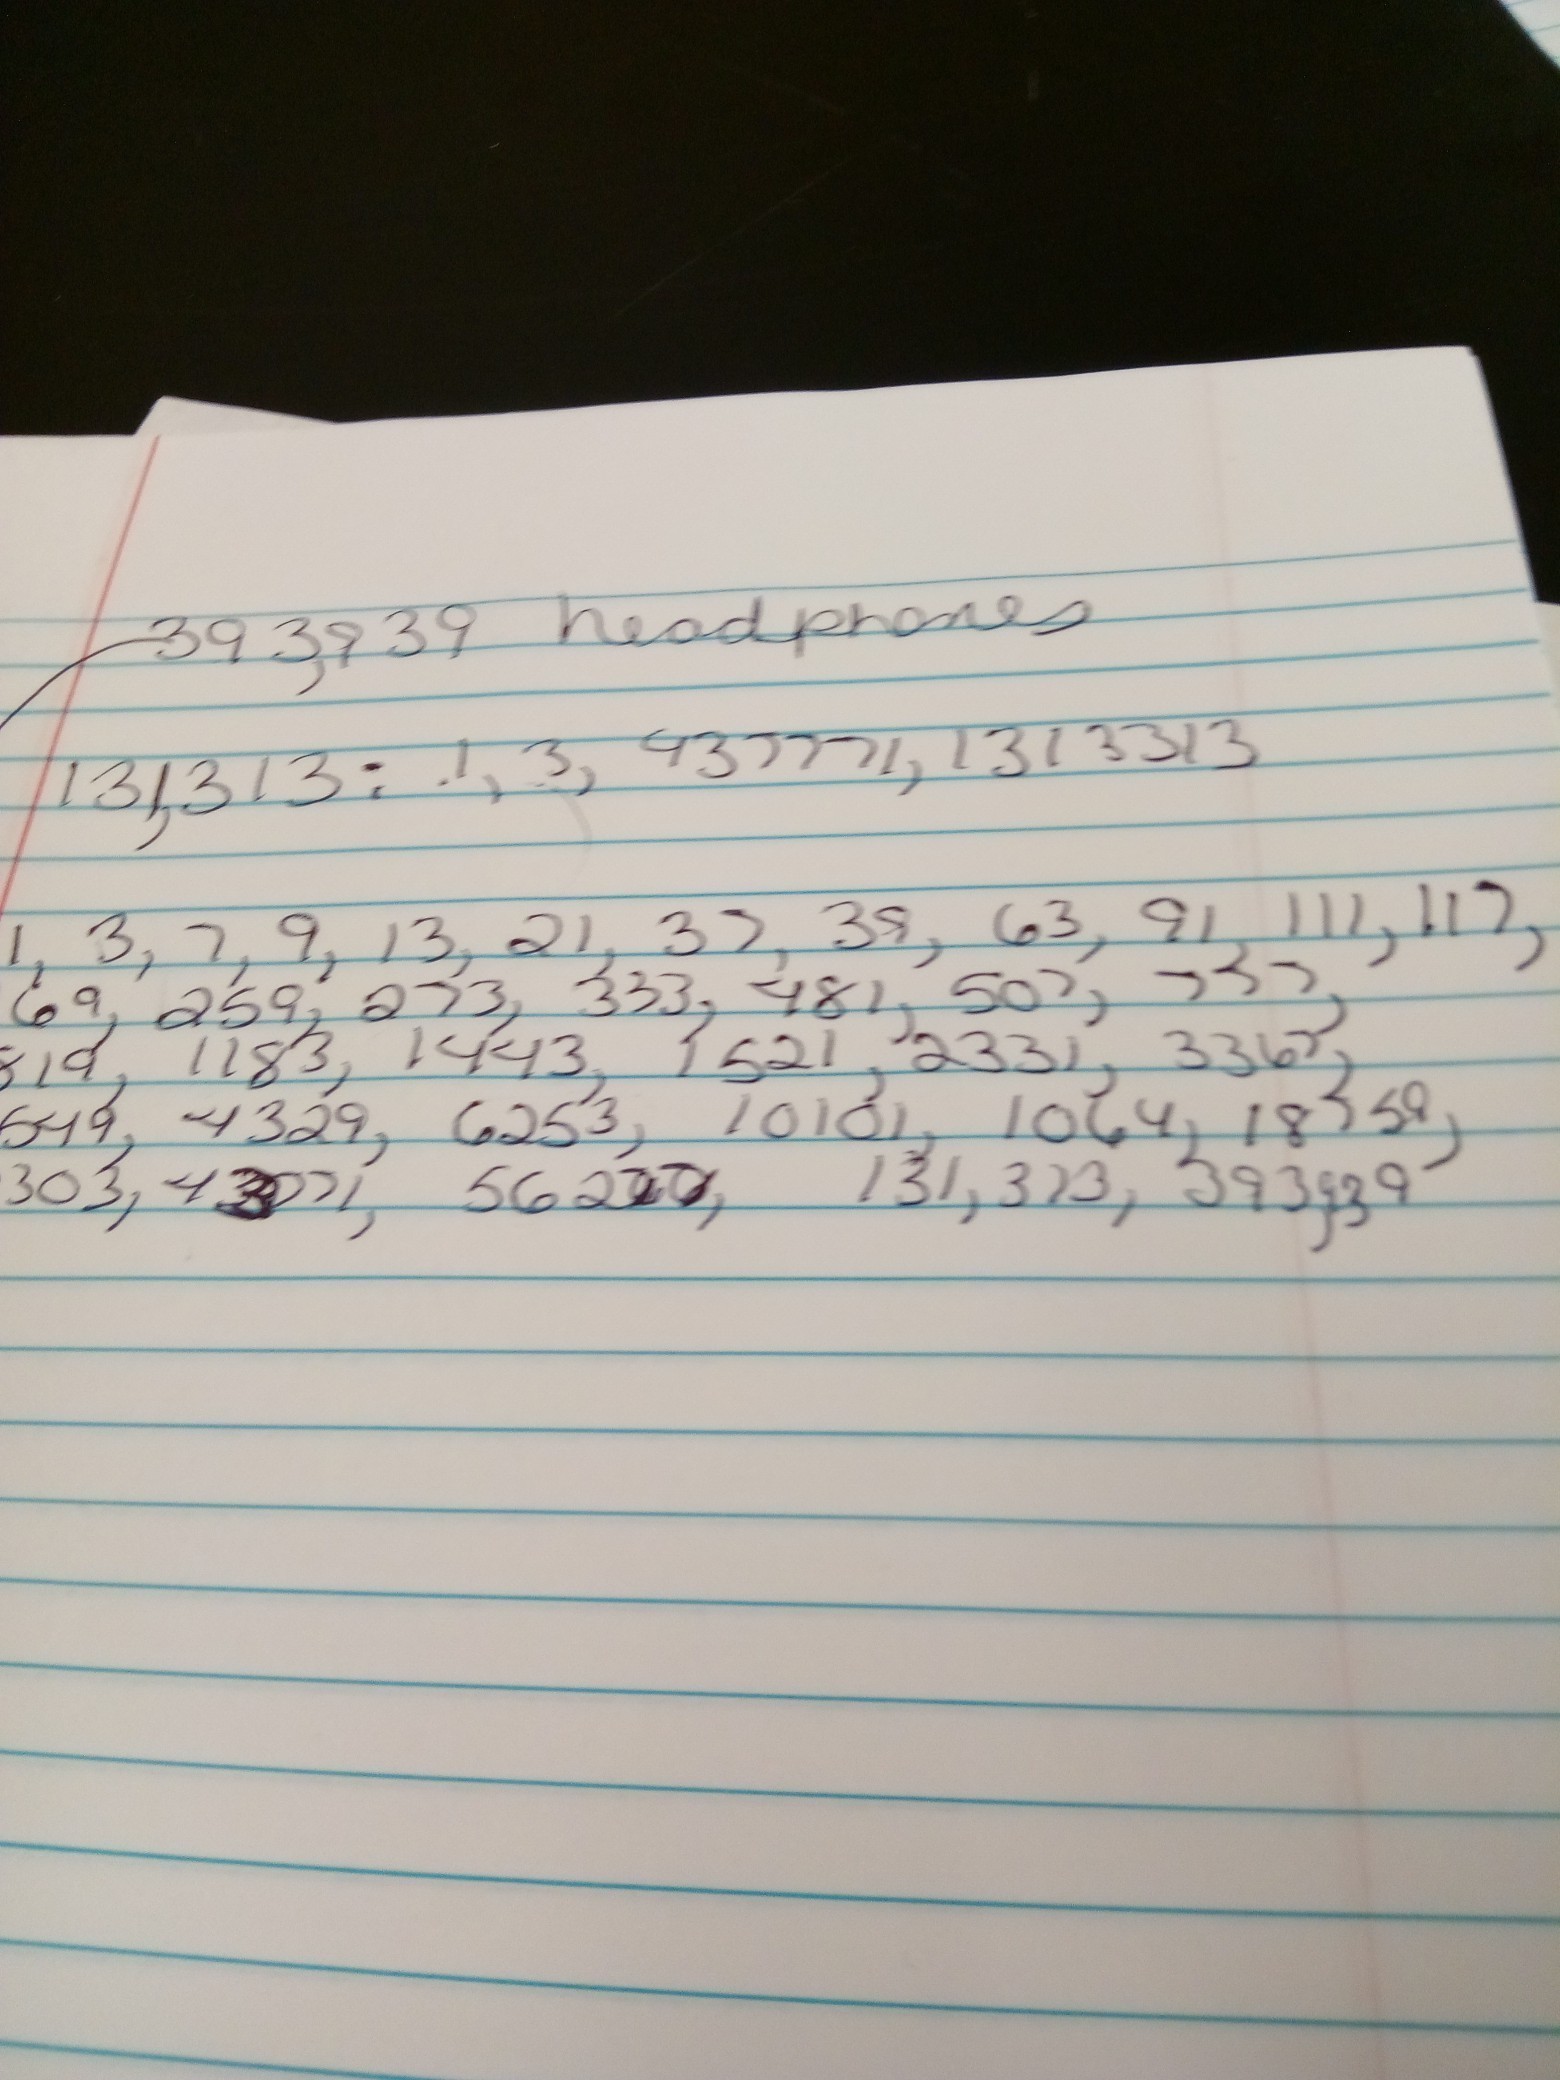 393,939 headphones
131,313: 1, 3, 437771, 1313313
1, 3, 7, 9, 13, 21, 37, 39, 63, 91, 111, 117,
69, 259, 273, 333, 481, 507, 777,
819, 1183, 1443, 1521, 2331, 3367,
549, 4329, 6253, 10101, 1064, 18759,
303, 131,373, 393,939